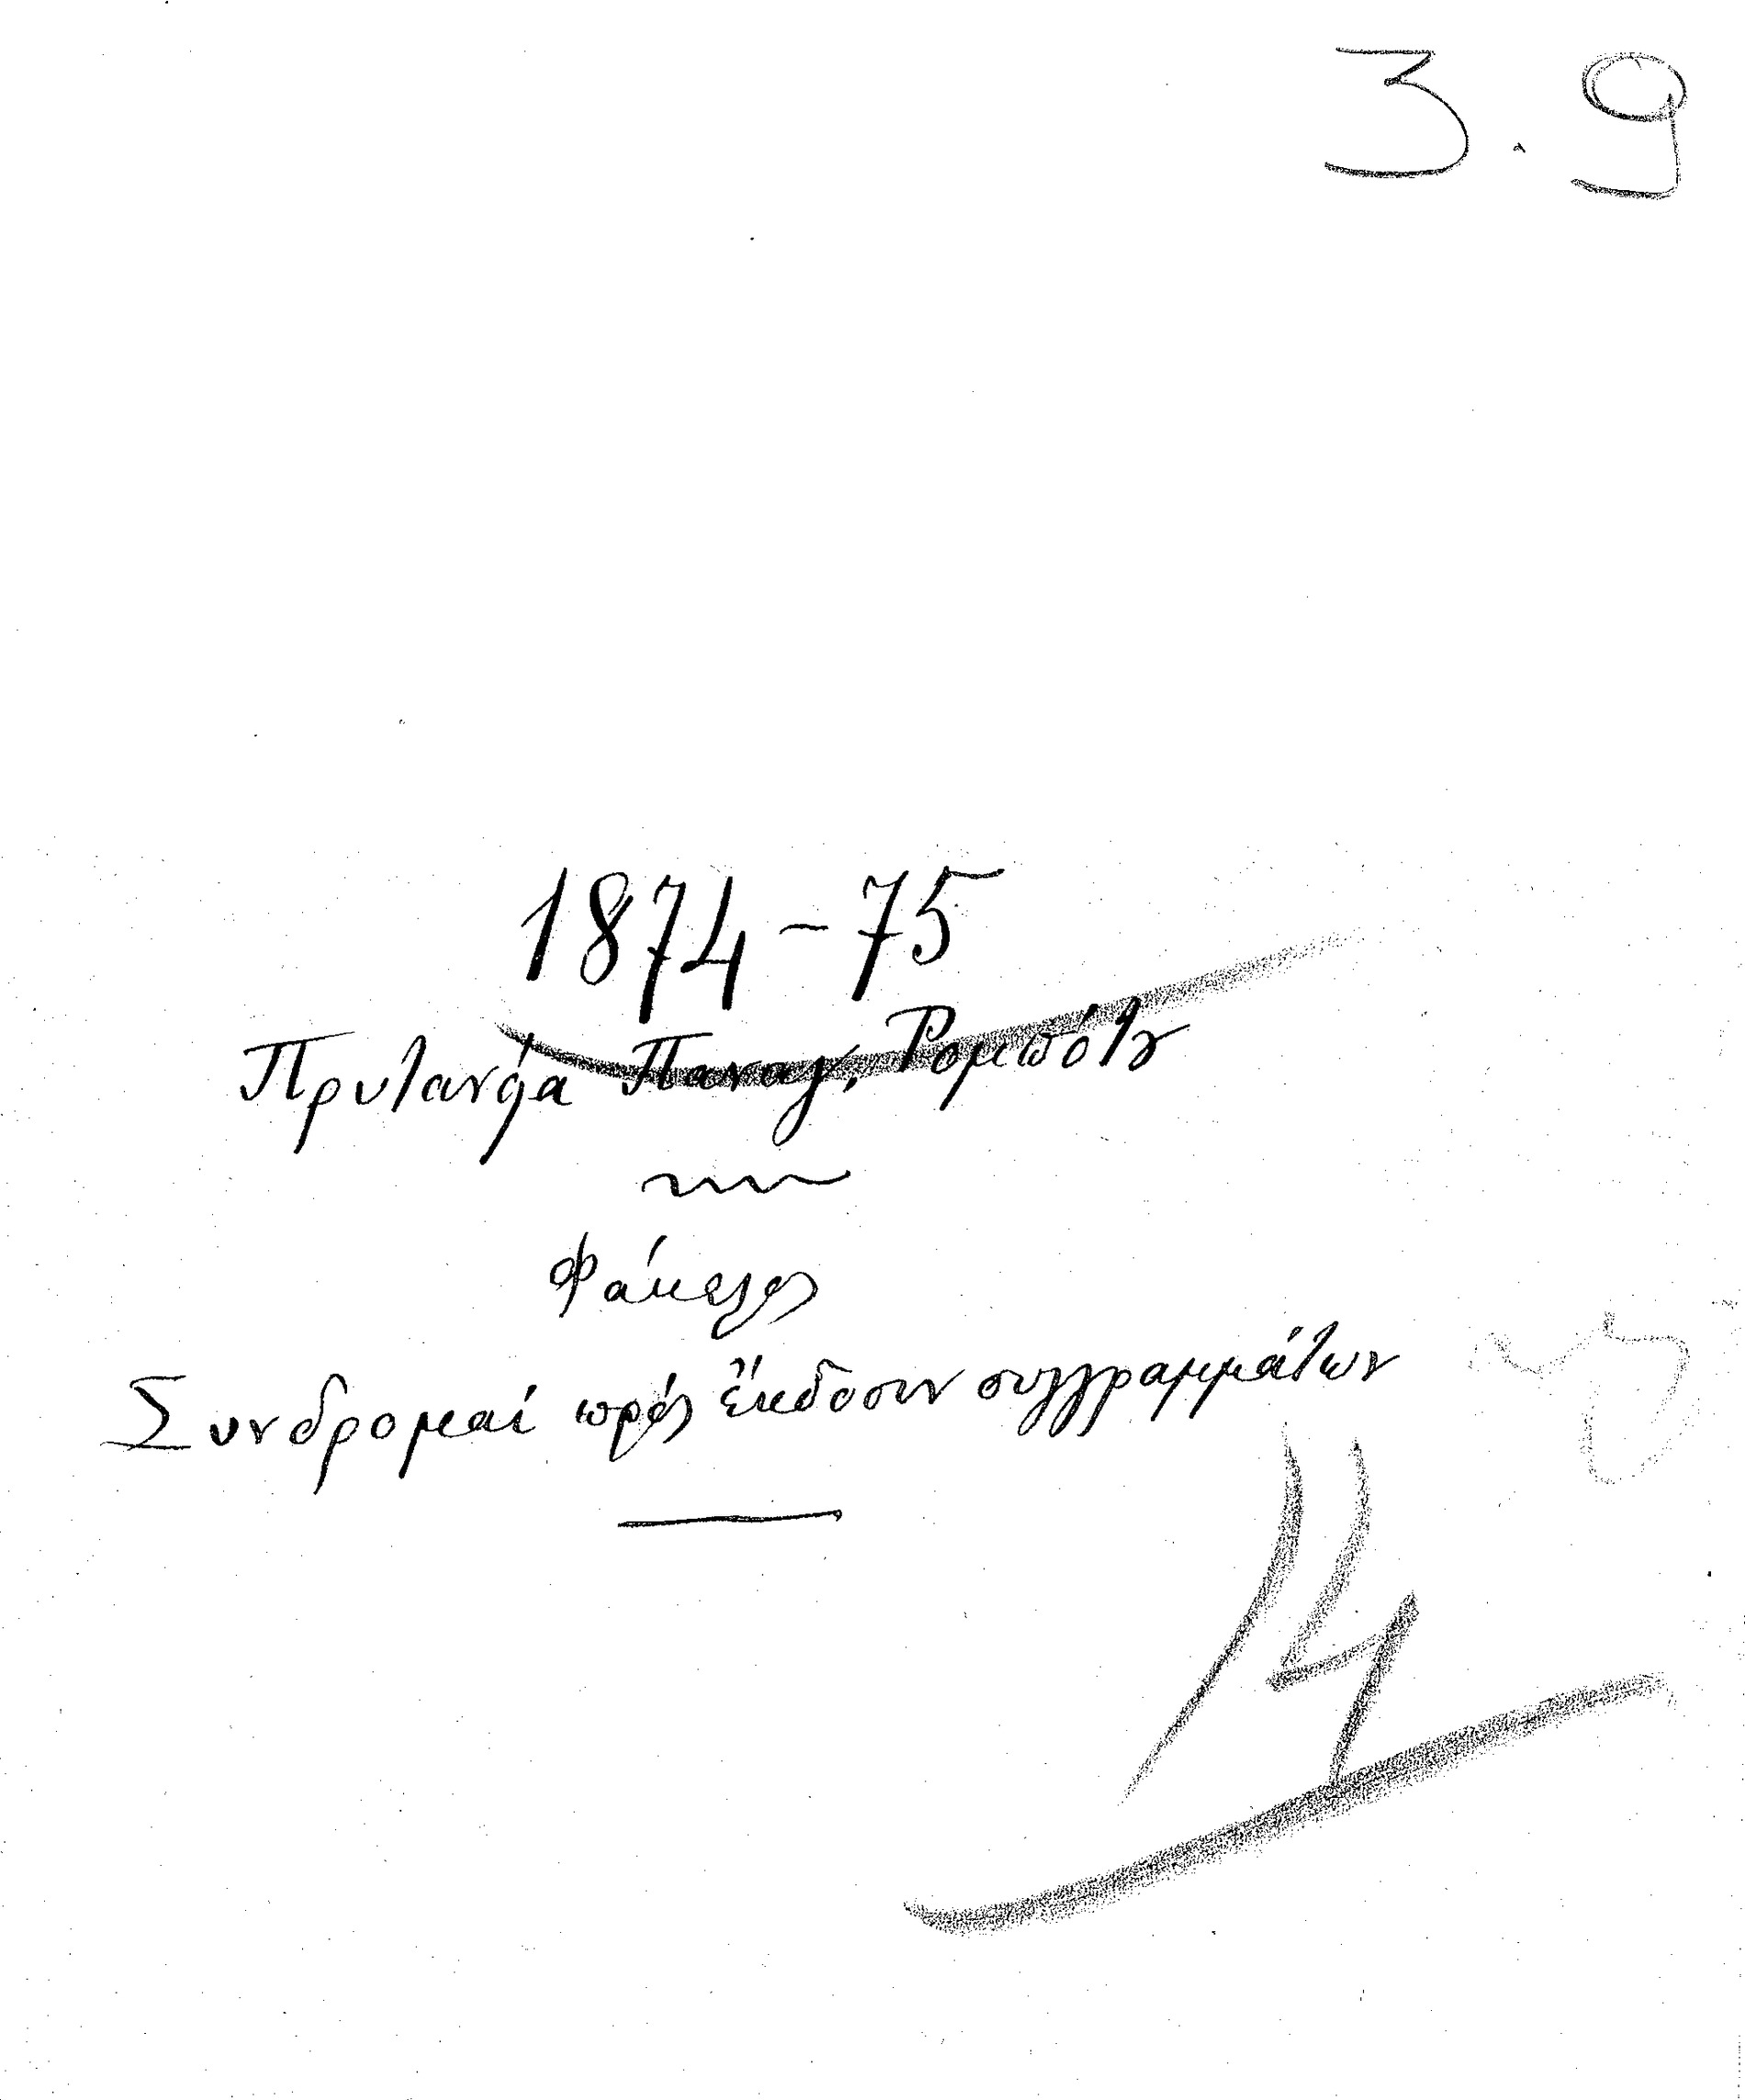 3.9
1874-75
Πρυτανεία Παναγ. Ρομπότη
Φάκελος
Συνδρομαί πρός ἔκδοσιν συγγραμμάτων
14